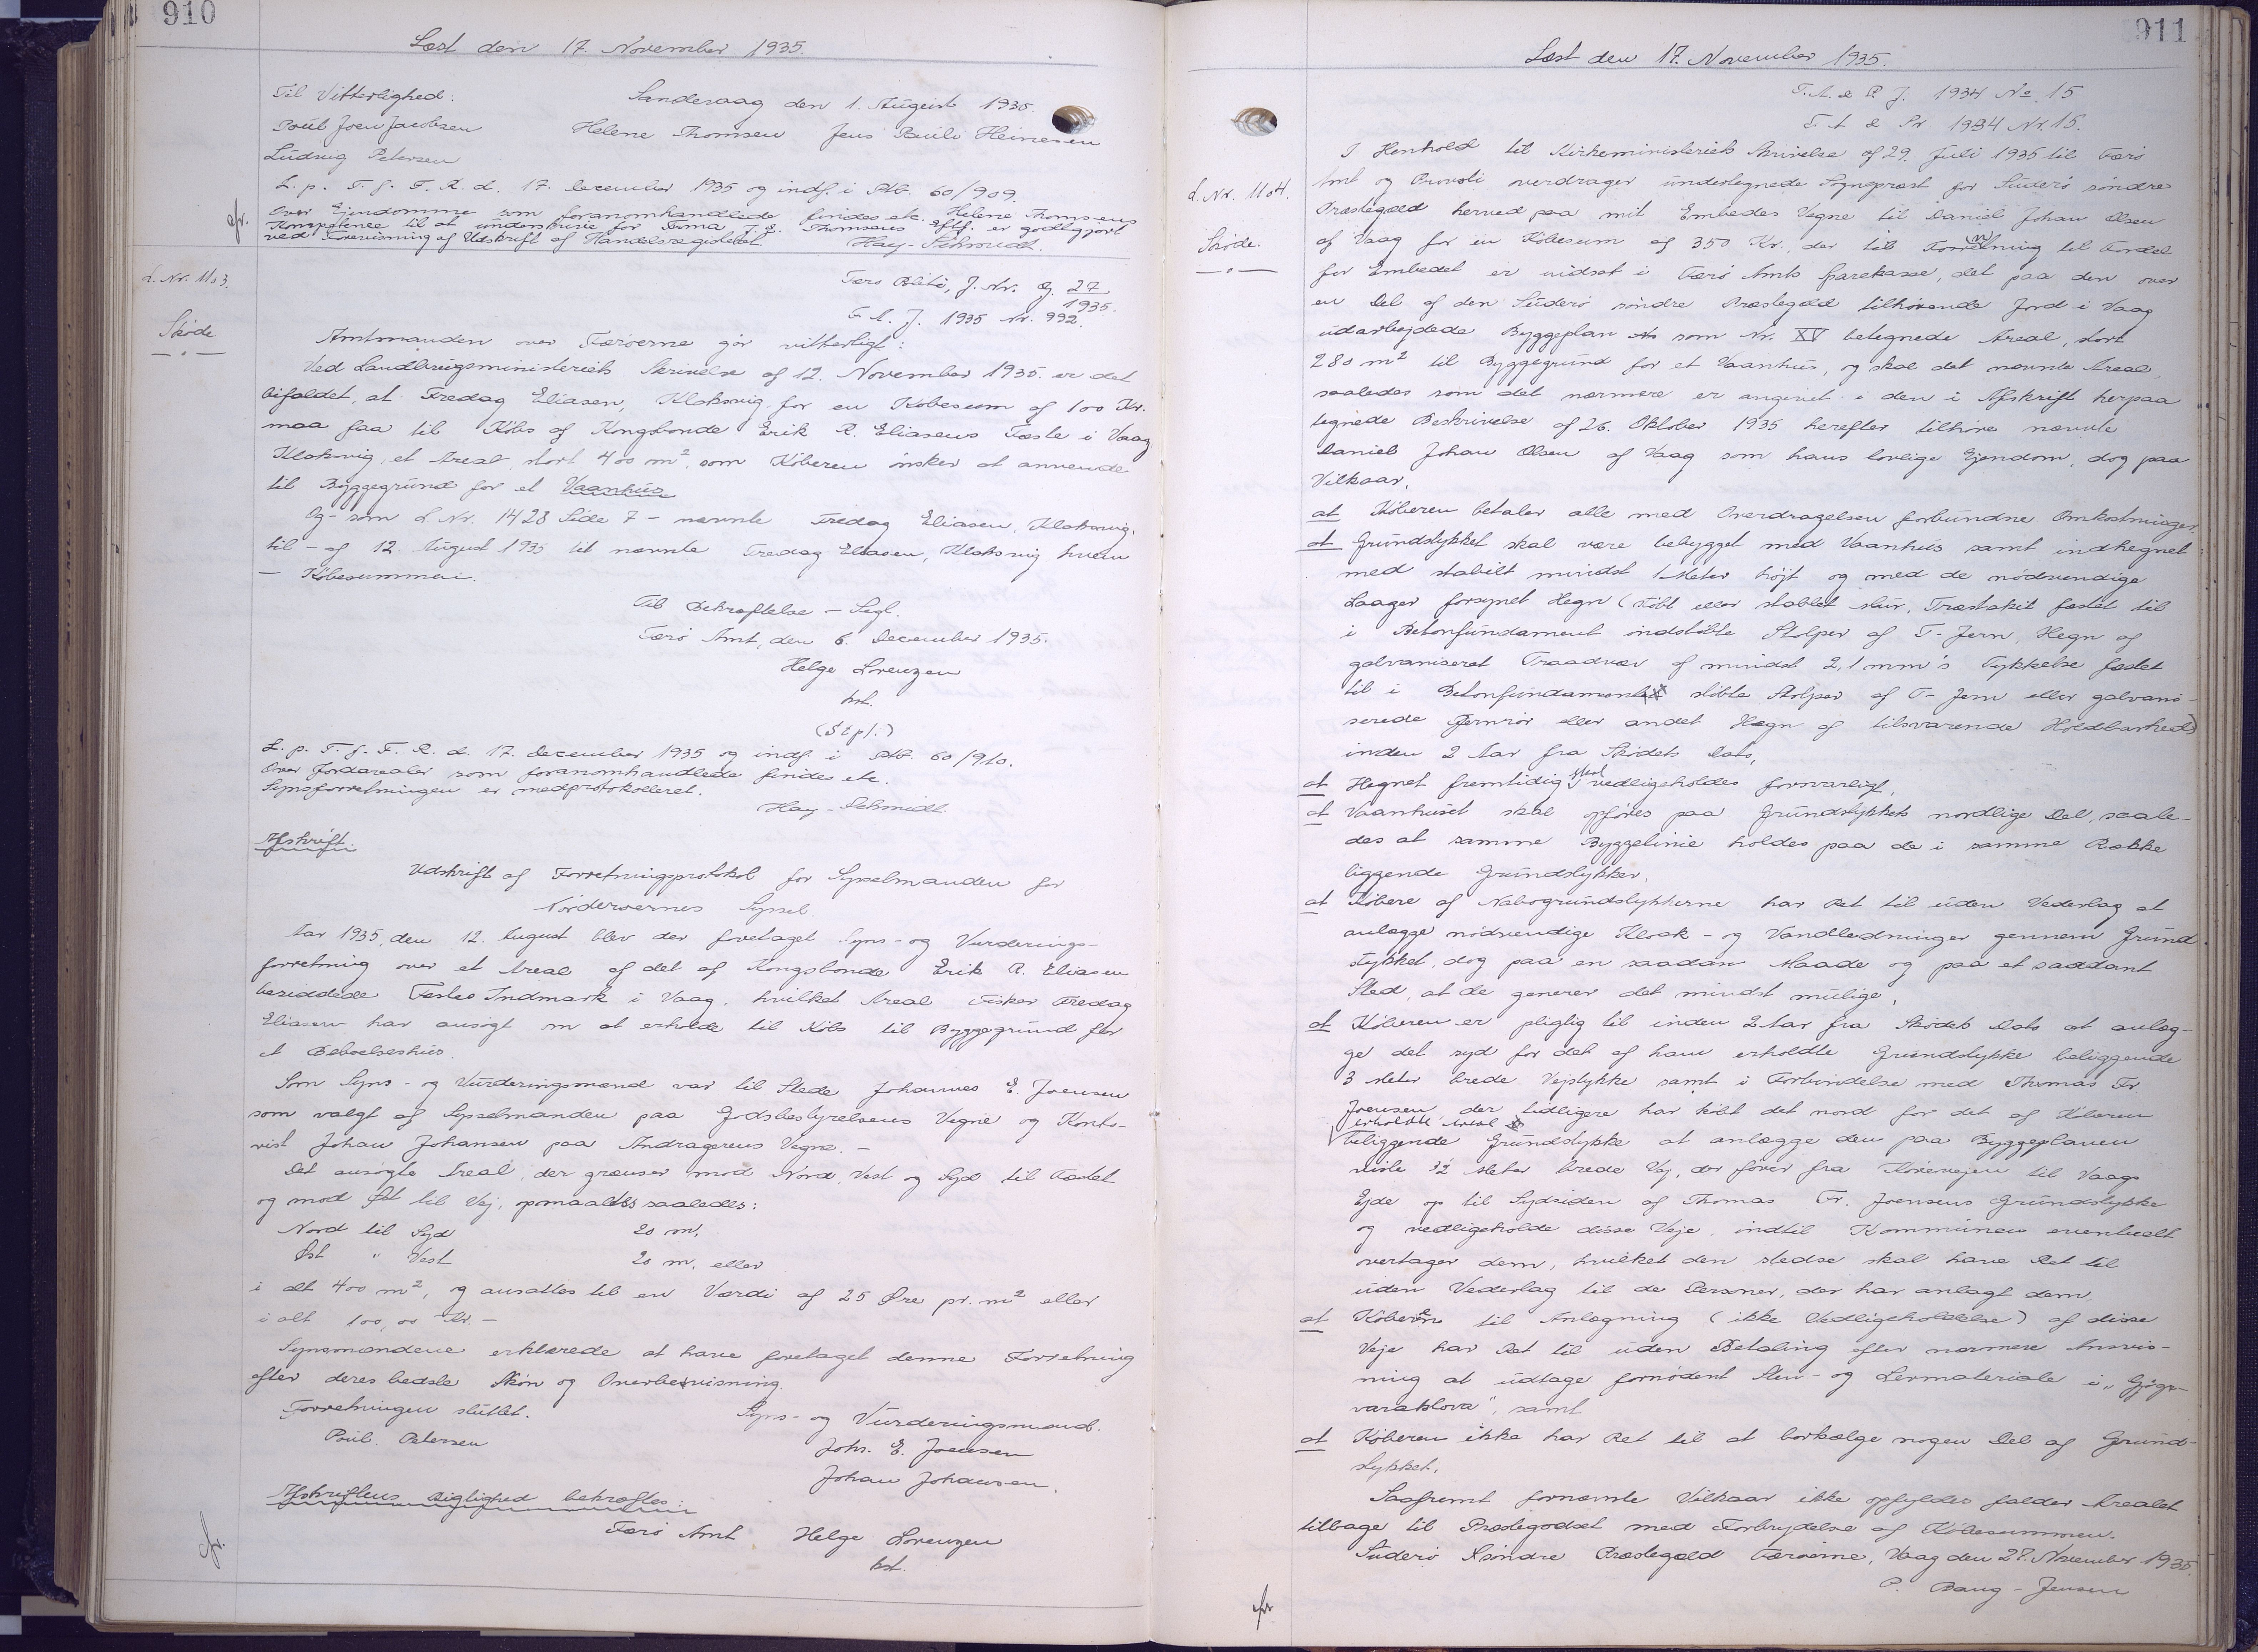 910
Læst den 17. November 1935.
Til Vitterlighed:
Sandevaag den 1. August 1935.
Poul Joen Jacobsen
Helene Thomsen Jens Pauli Heinesen
Ludvig Petersen
L. p. T. f. F. R. d. 17. December 1935 og indf. i Skb. 60/909.
Over Ejendomme som foranomhandlede findes etc. Helene Thomsens
Kompetence til at underskrive for Firma T. E. Thomsens Eftf. er godtgjort
ved Forevisning af Udskrift af Handelsregisteret.
Hay-Schmidt.
L. Nr. 1103.
Skøde
Færø Politi, J. Nr. Og. 27
1935.
F. A. J. 1935 Nr. 992.
Amtmanden over Færøerne gör vitterligt:
Ved Landbrugsministeriets Skrivelse af 12. November 1935 er det
bifaldet, at Fredag Eliasen, Klaksvig for en Købesum af 100 Kr.
maa faa til Købs af Kongsbonde Erik R. Eliasens Fæste i Vaag
Klaksvig, et Areal, stort 400 m², som Køberen ønsker at anvende
til Byggegrund for et Vaanhus
Og - som L Nr. 1428 Side 7 - nævnte Fredag Eliasen, Klaksvig,
til - af 12. August 1935 til nævnte Fredag Eliasen, Klaksvig hvem
- Købesummen.
Til Bekræftelse - Segl.
Færø Amt, den 6. December 1935.
Helge Lorenzen
kst.
(Stpl.)
L. p. T. f. F. R. d. 17. December 1935 og indf. i Skb. 60/910.
Over Jordarealer som foranomhandlede findes etc.
Synsforretningen er medprotokolleret.
Hay-Schmidt
Afskrift.
Udskrift af Forretningsprotokol for Sysselmanden for
Nordøernes Syssel.
Aar 1935, den 12. August blev der foretaget Syns- og Vurderings-
forretning over et Areal af det af Kongsbonde Erik R. Eliasen
besiddede Fæstes Indmark i Vaag, hvilket Areal Fisker Fredag
Eliasen har ansøgt om at erholde til Købs til Byggegrund for
et Beboelseshus.
Som Syns- og Vurderingsmænd var til Stede Johannes E. Joensen
som valgt af Sysselmanden paa Godsbestyrelsens Vegne og Konto-
rist Johan Johansen paa Andragerens Vegne. -
Det ansøgte Areal, der grænser mod Nord, Vest og Syd til Fæstet
og mod Øst til Vej, opmaaltes saaledes:
Nord til Syd 20 m.
Øst " Vest 20 m. eller
i alt 400 m², og ansattes til en Værdi af 25 Øre pr. m² eller
i alt 100,00 Kr. -
Synsmændene erklærede at have foretaget denne Forretning
efter deres bedste Skøn og Overbevisning.
Forretningen sluttet.
Syns- og Vurderingsmænd.
Poul Petersen
Johs. E. Joensen
Johan Johansen.
Afskriftens Rigtighed bekræftes:
Færø Amt Helge Lorenzen
kst.
911
Læst den 17. November 1935.
F. A. & P. J. 1934 No 15
F. A & Pr 1934 Nr. 15.
L. Nr. 1104.
Skøde.
I Henhold til Kirkeministeriets Skrivelse af 29. Juli 1935 til Færø
Amt og Provsti overdrager undertegnede Sognepræst for Suderø søndre
Præstegæld herved paa mit Embedes Vegne til Daniel Johan Olsen
af Vaag for en Købesum af 350 Kr., der til Forrentning til Fordel
for Embedet er indsat i Færø Amts Sparekasse, det paa den over
en Del af den Suderø søndre Præstegæld tilhørende Jord i Vaag
udarbejdede Byggeplan som Nr. XV betegnede Areal, stort
280 m² til Byggegrund for et Vaanhus, og skal det nævnte Areal,
saaledes som det nærmere er angivet i den i Afskrift herpaa
tegnede Beskrivelse af 26. Oktober 1935 herefter tilhøre nævnte
Daniel Johan Olsen af Vaag som hans lovlige Ejendom, dog paa
Vilkaar,
at Køberen betaler alle med Overdragelsen forbundne Omkostninger,
at Grundstykket skal være bebygget med Vaanhus samt indhegnet
med stabilt mindst 1 Meter højt og med de nødvendige
Laager forsynet Hegn (støbt eller stablet Mur, Træstakit fæstet til
i Betonfundament indstøbte Stolper af T-Jern, Hegn og
galvaniseret Traadvæv af mindst 2,1 mm's Tykkelse fæstet
til i Betonfundament støbte Stolper af T-Jern eller galvani-
serede Jernrør eller andet Hegn af tilsvarende Holdbarhed)
inden 2 Aar fra Skødets Dato,
at Hegnet fremtidig skal vedligeholdes forsvarligt,
at Vaanhuset skal opføres paa Grundstykkets nordlige Del, saale-
des at samme Byggelinie holdes paa de i samme Række
liggende Grundstykker,
at Købere af Nabogrundstykkerne har Ret til uden Vederlag at
anlægge nødvendige Kloak- og Vandledninger gennem Grund
stykket, dog paa en saadan Maade og paa et saadant
Sted, at de generer det mindst mulige,
at Køberen er pligtig til inden 2 Aar fra Skødets Dato at anlæg-
ge det syd for det af ham erholdte Grundstykke beliggende
3 Meter brede Vejstykke samt i Forbindelse med Thomas Fr.
Joensen, der tidligere har købt det nord for det af Køberen
erholdte Areal
beliggende Grundstykke at anlægge den paa Byggeplanen
viste 2 Meter brede Vej, der fører fra Kørevejen til Vaags
Ejde op til Sydsiden af Thomas Fr. Joensens Grundstykke
og vedligeholde disse Veje, indtil Kommunen eventuelt
overtager dem, hvilket den stedse skal have Ret til
uden Vederlag til de Personer, der har anlagt dem,
at Køberen til Anlægning (ikke Vedligeholdelse) af disse
Veje har Ret til uden Betaling efter nærmere Anvis-
ning at udtage fornødent Sten- og Lermateriale i
samt
at Køberen ikke har Ret til at bortsælge nogen Del af Grund-
stykket.
Saafremt fornævnte Vilkaar ikke opfyldes falder Arealet
tilbage til Præstegodset med Forbrydelse af Købesummen.
Suderø Søndre Præstegæld Færøerne, Vaag den 27. November 1935.
P. Bang-Jensen